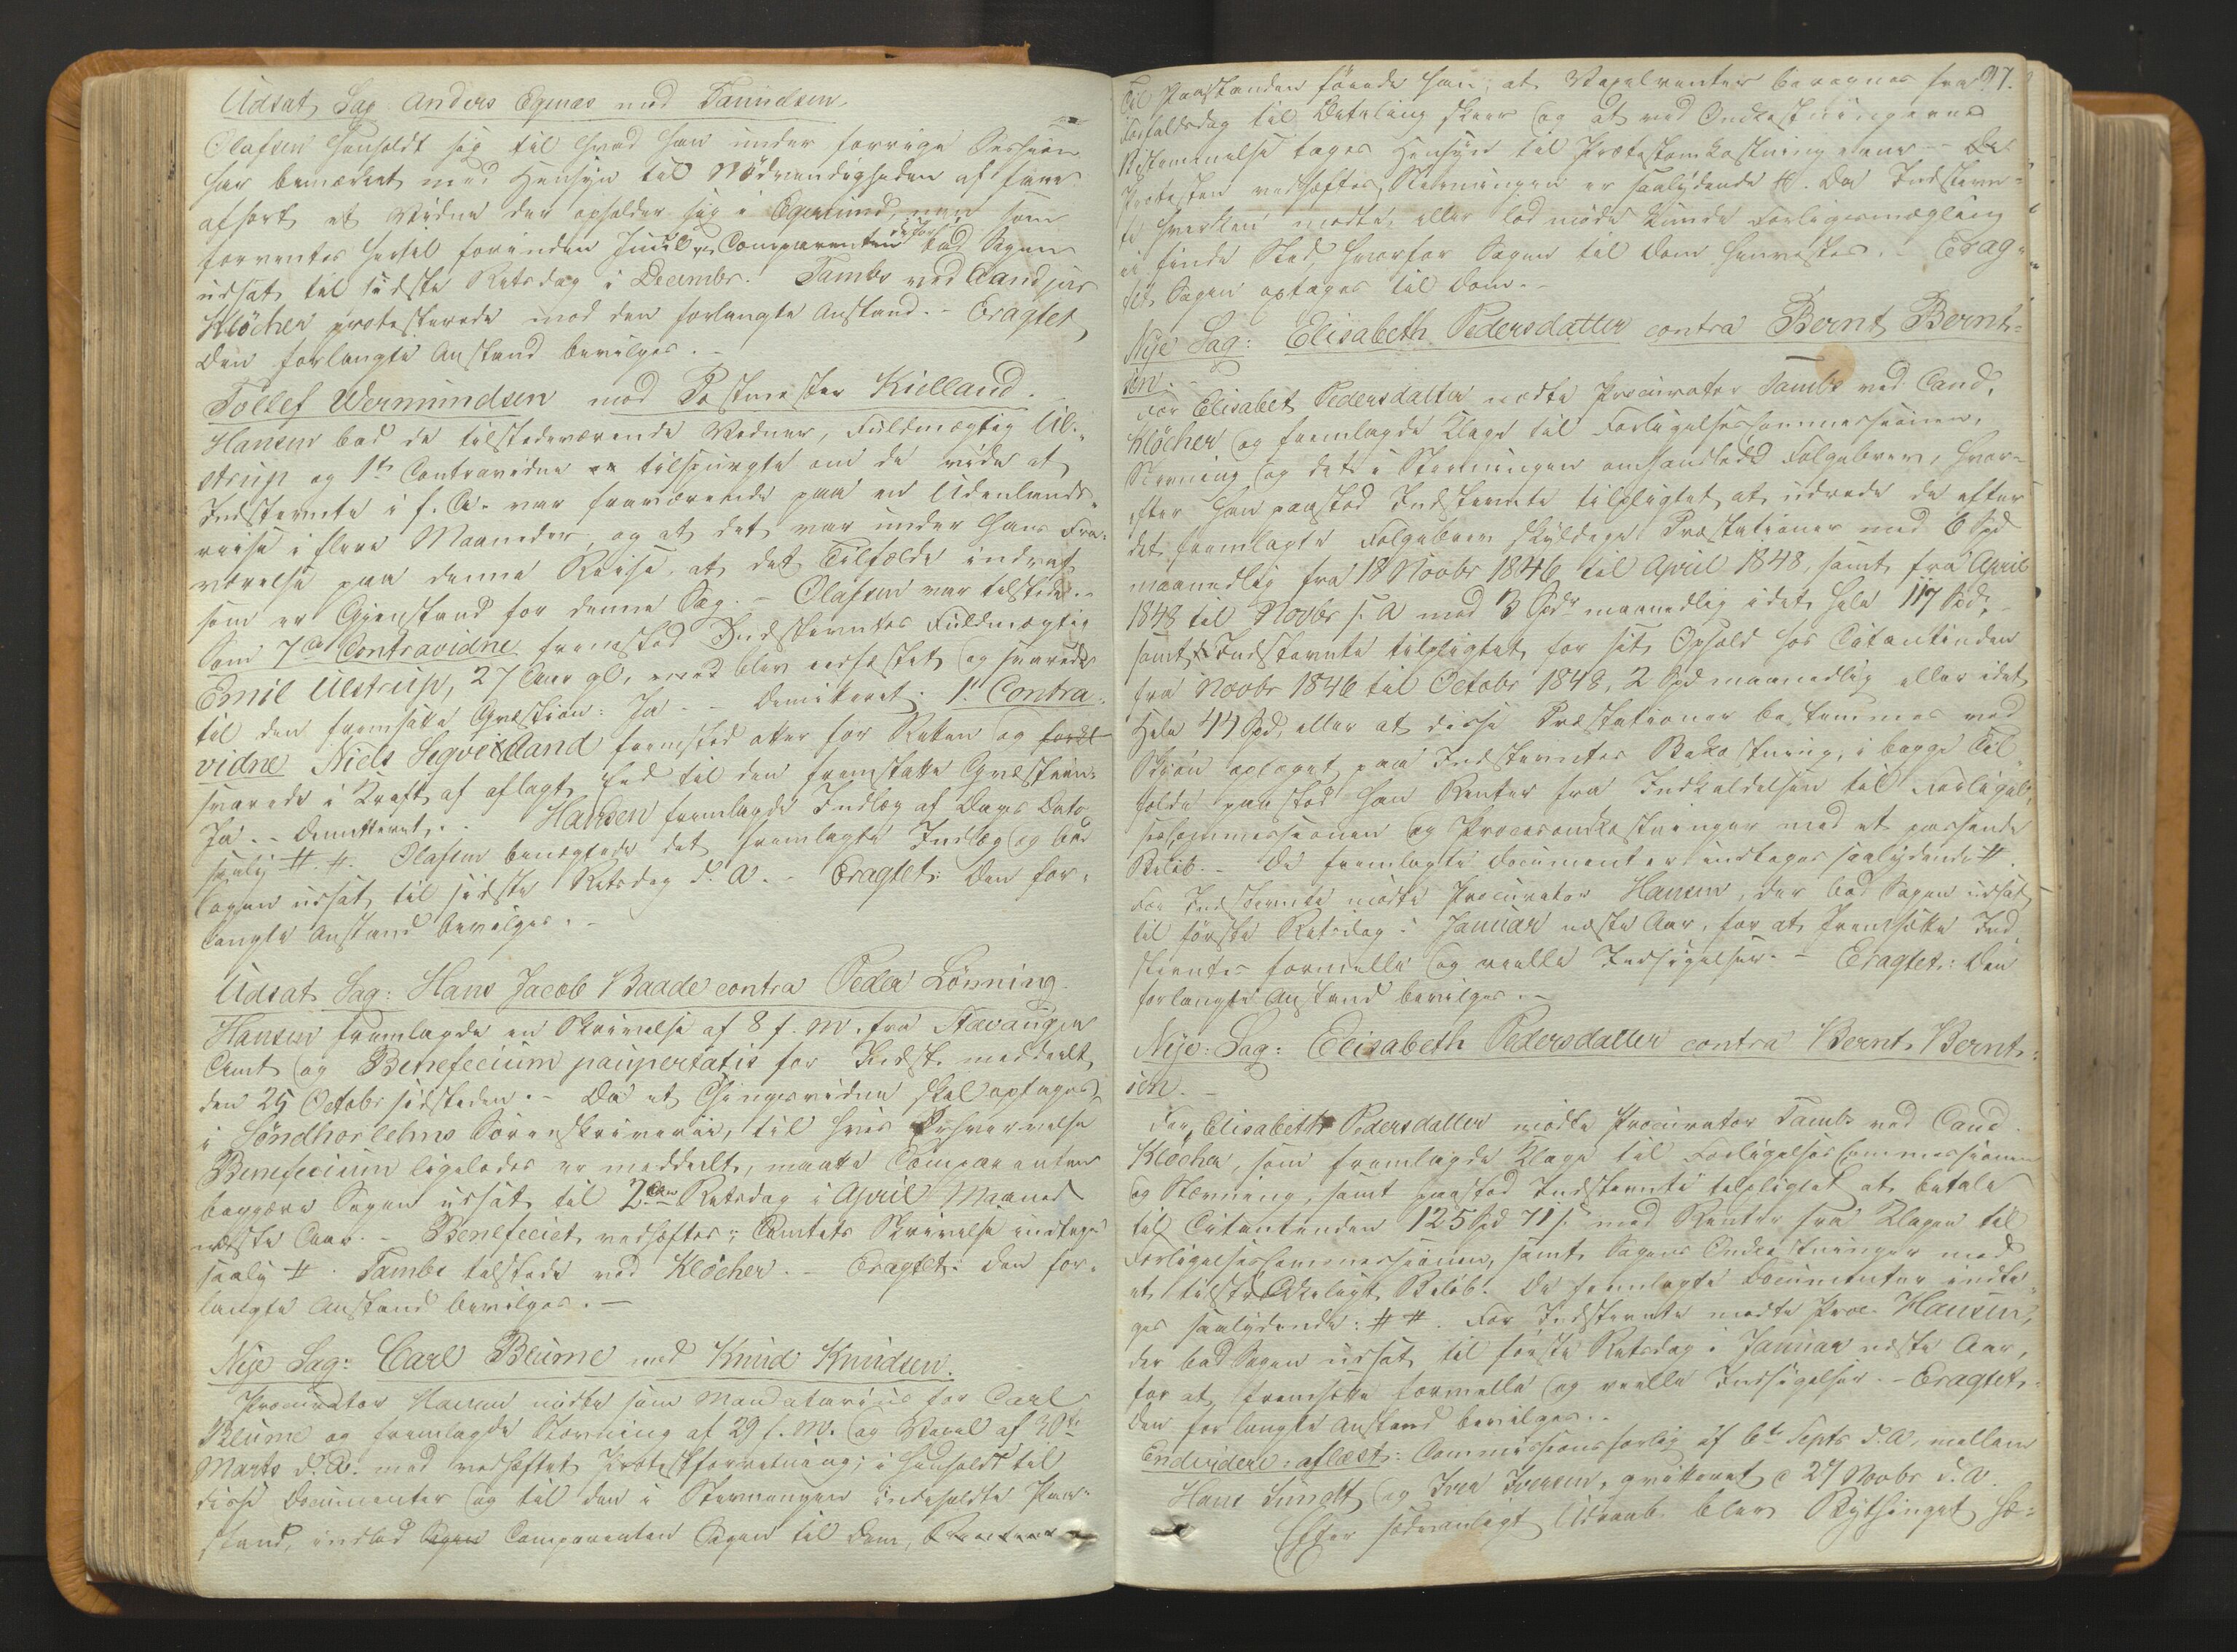 Udsat Sag Anders Egenæs mod Tanüdsen.
Olafsen henholdt sig til hvad han under forrige Session
har bemærket med Hensyn til Nödvendigheden af faae
afhørt et Vidne der opholder sig i Egersund, men som
forventes hertil forinden Juul Comparenten derfor bad Sagen
udsat til sidste Retsdag i Decembr. Tambs ved Cand jur
Klöcker protesterede mod den forlangte Anstand. - Eragtet
Den forlangte Anstand bevilges. -
Tollef Wermundsen mod Postmester Kielland. -
Hansen bad de tilstedeværende Vidner, Fuldmægtig Ul-
strup og 1ste Contravidne tilspurgte om de vide at
Indstevnte i f. A. var fraværende paa en Udenlands-
reise i flere Maaneder, og at det var under hans Fra-
værelse paa denne Reise, at det Tilfælde indtraf
som er Gjenstand for denne Sag. - Olafsen var tilstede. -
Som 7de Contravidne fremstod Indstevntes Fuldmægtig
Emil Ulstrup, 27 Aar gl, blev eedfæstet og svarede
til den fremsatte Qvæstion: Ja. - Demitteret. 1ste Contra-
vidne Niels Seqveland fremstod atter for Retten og
svarede i Kraft af aflagt Eed til den fremsatte Qvæstion:
Ja. - Demitteret. - Hansen fremlagde Indlæg af Dags Dato
saaly # #. Olafsen benægtede det fremlagte Indlæg og bad
Sagen udsat til sidste Retsdag d. A. - Eragtet: Den for-
langte Anstand bevilges. -
Udsat Sag: Hans Jacob Baade contra Peder Lönning.
Hansen fremlagde en Skrivelse af 8 f. M. fra Stavanger
Amt og Beneficium paupertatis for Indst. meddeelt
den 25 Octobr sidstleden. - Da et Thingsvidne skal optages
i Söndhorlehns Sorenskriverie, til hvis Erhvervelse
Beneficium ligeledes er meddeelt, maatte Comparenten
begjære Sagen udsat til 2den Retsdag i April Maaned
næste Aar. - Beneficiet vedhæftes; Amtets Skrivelse indtages
saaly #. Tambs tilstede ved Klöcker. - Eragtet: Den for-
langte Anstand bevilges. -
Nye Sag: Carl Blume mod Knud Knudsen.
Procurator Hansen mödte som Mandatarius for Carl
Blume og fremlagde Stevning af 29 f. M. og Vexel af 30te
Marts d. A. med vedhæftet Protestforretning; i Henhold til
disse Documenter og til den i Stevningen indeholdte Paa-
stand, indlod Comparenten Sagen til Dom,
97.
Til Paastanden föiede han, at Vexelrenter beregnes fra
Forfaldsdag til Betaling skeer og at ved Omkostningernes
Bestemmelse tages Hensyn til Protestomkostningerne -
Protesten vedhæftes, Stevningen er saalydende #. Da Indstevn-
te hverken mødte, eller lod møde kunde Forligsmægling
ei finde Sted, hvorfor Sagen til Dom henvistes. - Erag-
tet, Sagen optages til Dom. -
Nye Sag: Elisabeth Pedersdatter contra Bernt Bernt-
sen. -
For Elisabet Pedersdatter mødte Procurator Tambs ved Cand.
Klöcker og fremlagde Klage til Forligelsescommissionen,
Stevning og det i Stevningen omhandlede Fölgebrev, hvor-
efter han paastod Indstevnte tilpligtet at udrede de efter
det fremlagte Fölgebrev skyldige Præstationer med 6 Spd
maanedlig fra 18 Novbr 1846 til April 1848, samt fra April
1848 til Novbr s. A med 3 Spdr maanedlig i det hele 117 Spd, -
samt Indstevnte tilpligtet for sit Ophold hos Citantinden
fra Novbr 1846 til Octobr 1848, 2 Spd maanedlig eller i det
Hele 44 Spd, eller at disse Præstationer bestemmes ved
Skjøn optaget paa Indstevntes Bekostning, i begge Til-
fælde paastod han Renter fra Indkaldelsen til Forligel-
sescommissionen og Procesomkostninger med et passende
Beløb. - De fremlagte Documenter indtages saalydende #.
For Indstevnte mødte Procurator Hansen, der bad Sagen udsat
til første Retsdag i Januar næste Aar, for at fremsætte Ind-
stevntes formelle og reelle Indsigelser. - Eragtet: Den
forlangte Anstand bevilges. -
Nye: Sag: Elisabeth Pedersdatter contra Bernt Bernt-
sen. -
For Elisabeth Pedersdatter mødte Procurator Tambs ved Cand.
Klöcker, som fremlagde Klage til Forligelsescommissionen
og Stevning, samt paastod Indstevnte tilpligtet at betale
til Citantinden 125 Spd 71 s. med Renter fra Klagen til
Forligelsescommissionen, samt Sagens Omkostninger med
et tilstrækkeligt Beløb. De fremlagte Documenter indta-
ges saalydende: # #. For Indstevnte mødte Proc. Hansen,
der bad Sagen udsat til første Retsdag i Januar næste Aar,
for at fremsætte formelle og reelle Indsigelser. - Eragtet.
Den forlangte Anstand bevilges. -
Endvidere aflæst: Commissionsforlig af 6te Septr d. A. mellem
Hans Sundt og Iver Iversen, qvitteret d 27 Novbr d. A.
Efter sædvanligt Udraab blev Bythinget hæ-